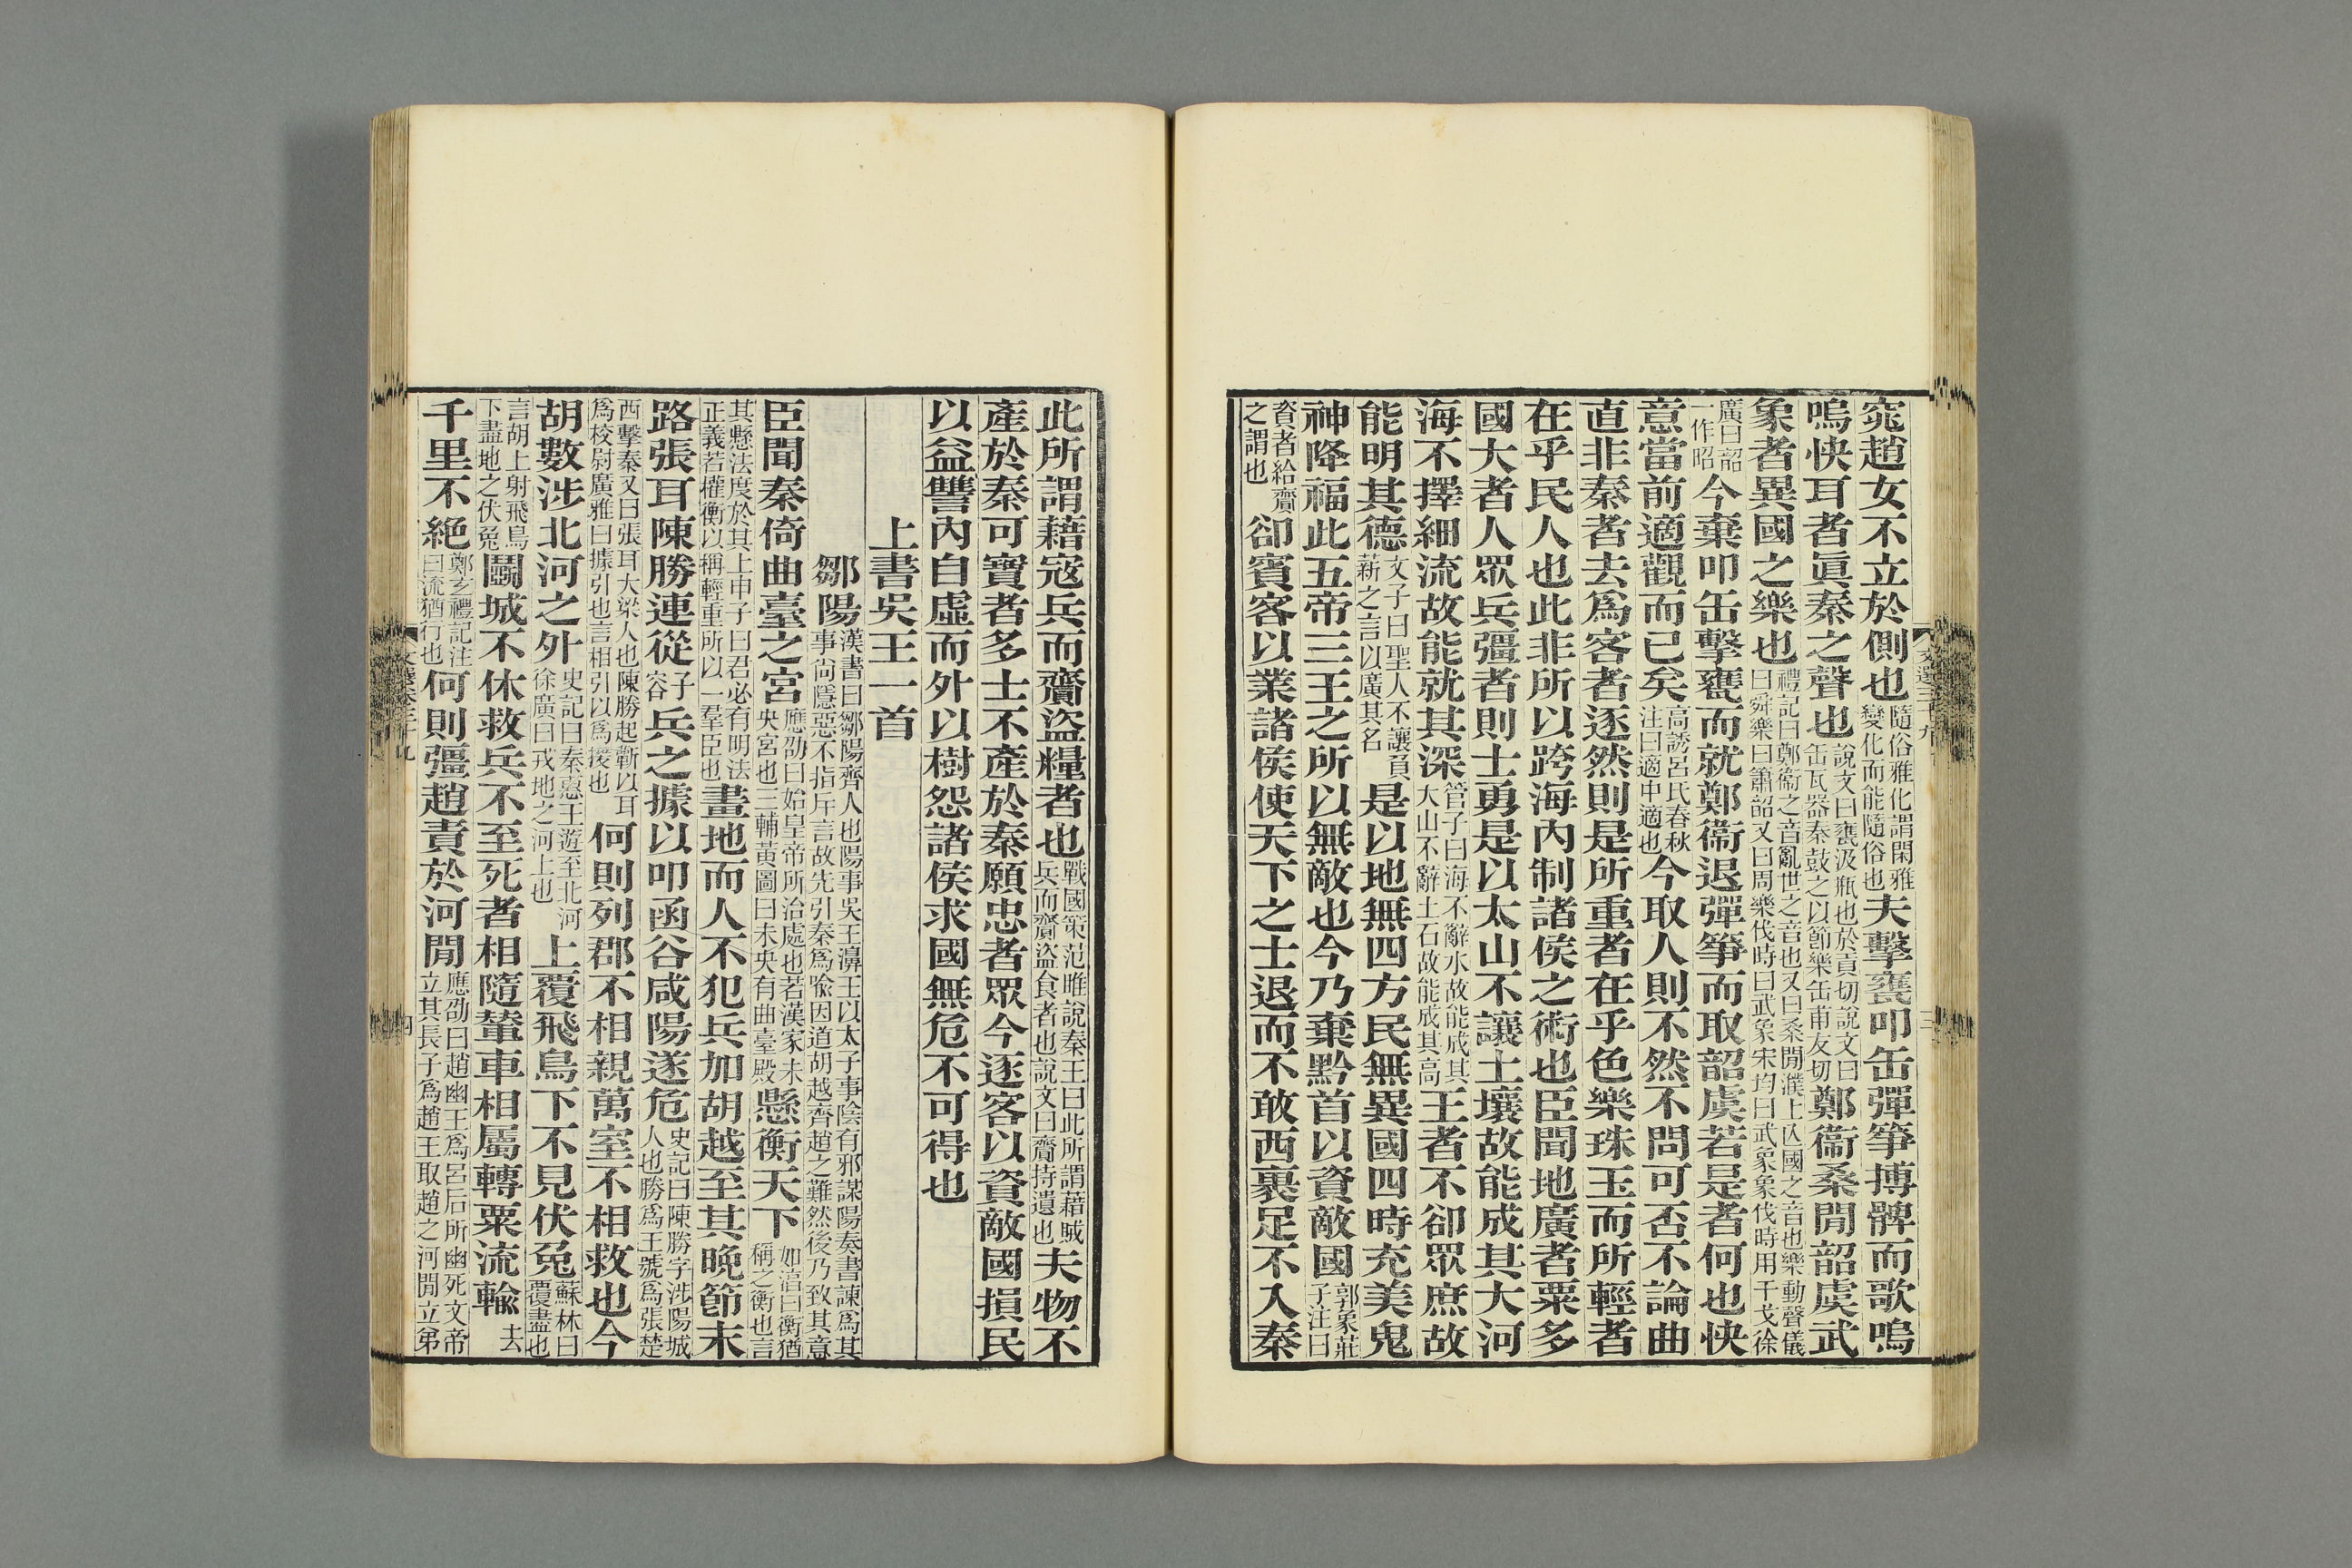 窕趙女不立於側也隨俗雅化謂閑雅變化而能隨俗也夫擊甕叩缶彈箏搏髀而歌嗚
嗚快耳者眞秦之聲也說文曰甕汲瓶也於貢切說文曰缶瓦器秦鼓之以節樂缶甫友切鄭衞桑閒韶虞武
象者異國之樂也禮記曰鄭衞之音亂世之音也又曰桑閒濮上亾國之音也樂動聲儀曰舜樂曰簫韶又曰周樂伐時曰武象宋均曰武象象伐時用干戈徐
廣曰韶一作昭今棄叩缶擊甕而就鄭衞退彈箏而取韶虞若是者何也快
意當前適觀而已矣高誘呂氏春秋注曰適中適也今取人則不然不問可否不論曲
直非秦者去爲客者逐然則是所重者在乎色樂珠玉而所輕者
在乎民人也此非所以跨海內制諸侯之術也臣聞地廣者粟多
國大者人眾兵彊者則士勇是以太山不讓土壤故能成其大河
海不擇細流故能就其深管子曰海不辭水故能成其大山不辭土石故能成其高王者不卻眾庶故
能明其德文子曰聖人不讓負薪之言以廣其名是以地無四方民無異國四時充美鬼
神降福此五帝三王之所以無敵也今乃棄黔首以資敵國郭象莊子注曰
資者給齎之謂也卻賓客以業諸侯使天下之士退而不敢西裹足不入秦
此所謂藉寇兵而齎盜糧者也戰國策范雎說秦王曰此所謂藉賊兵而齎盜食者也說文曰齎持遺也夫物不
產於秦可寶者多士不產於秦願忠者眾今逐客以資敵國損民
以益讐內自虛而外以樹怨諸侯求國無危不可得也
上書吳王一首
鄒陽漢書曰鄒陽齊人也陽事吳王濞王以太子事陰有邪謀陽奏書諫爲其事尙隱惡不指斥言故先引秦爲喻因道胡越齊趙之難然後乃致其意
臣聞秦倚曲臺之宮應劭曰始皇帝所治處也若漢家未央宮也三輔黃圖曰未央有曲臺殿懸衡天下如淳曰衡猶稱之衡也言
其懸法度於其上申子曰君必有明法正義若權衡以稱輕重所以一羣臣也畫地而人不犯兵加胡越至其晚節末
路張耳陳勝連從子容兵之據以叩函谷咸陽遂危史記曰陳勝字涉陽城人也勝爲王號爲張楚
西擊秦又曰張耳大梁人也陳勝起蘄以耳爲校尉廣雅曰據引也言相引以爲援也何則列郡不相親萬室不相救也今
胡數涉北河之外史記曰秦惠王遊至北河徐廣曰戎地之河上也上覆飛鳥下不見伏兔蘇林曰覆盡也
言胡上射飛鳥下盡地之伏兔鬬城不休救兵不至死者相隨輦車相屬轉粟流輸去
千里不絕鄭玄禮記注曰流猶行也何則彊趙責於河閒應劭曰趙幽王爲呂后所幽死文帝立其長子爲趙王取趙之河閒立弟